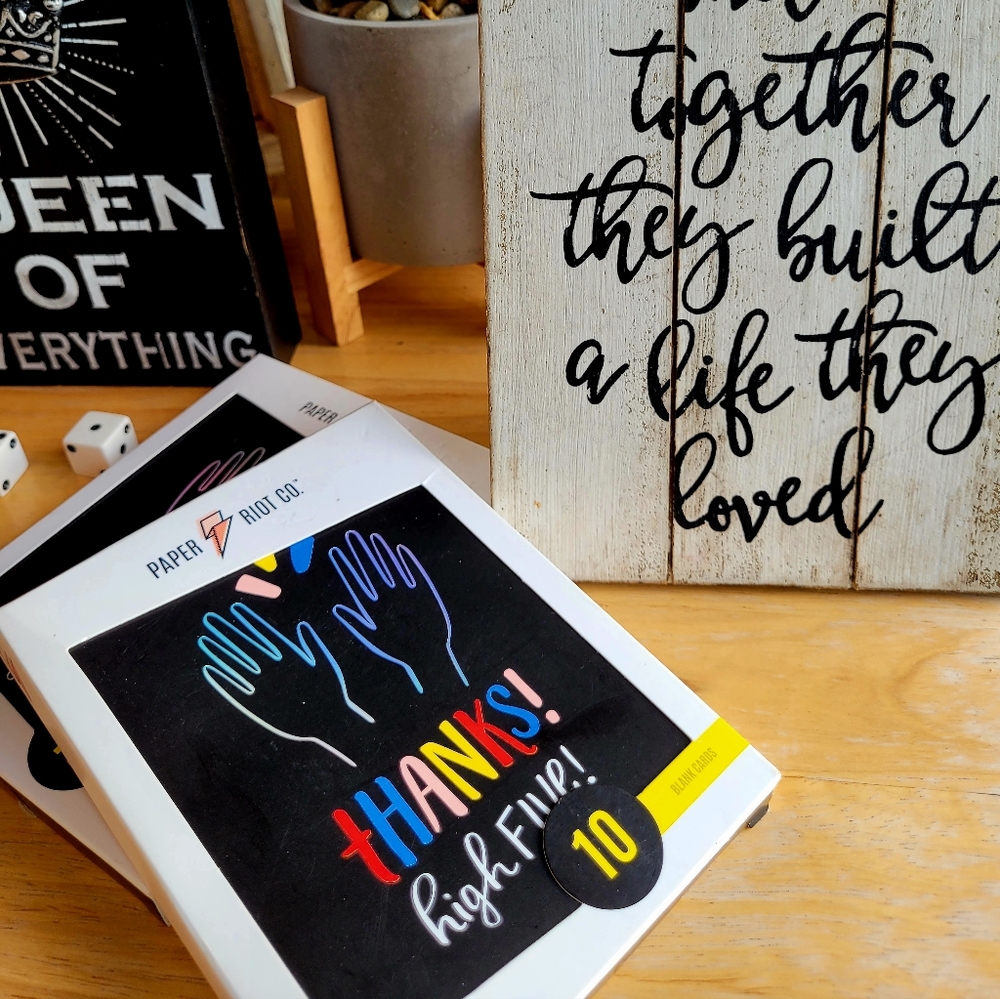 UEEN
OF
VERYTHING
together
they built
a life they
loved
PAPER
PAPER RIOT CO.™
tHANKS!
high FIVE!
10
BLANK CARDS